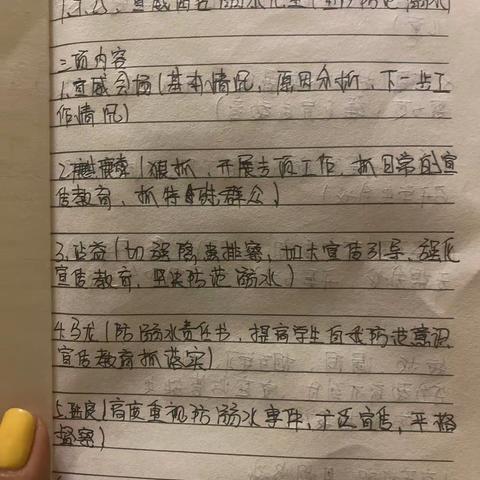 三项内容
1.宣威会场(基本情况,原因分析,下一步工
作情况)
2.麒麟(狠抓,开展专项工作,抓日常的宣
传教育,抓特殊群众)
3.沾益(加强隐患排察,加大宣传引导,强化
宣传教育,坚决防范溺水)
4.马龙(防溺水责任书,提高学生自我防范意识
宣传教育抓落实)
5.陆良(高度重视防溺水事件,广泛宣传,严格
督察)